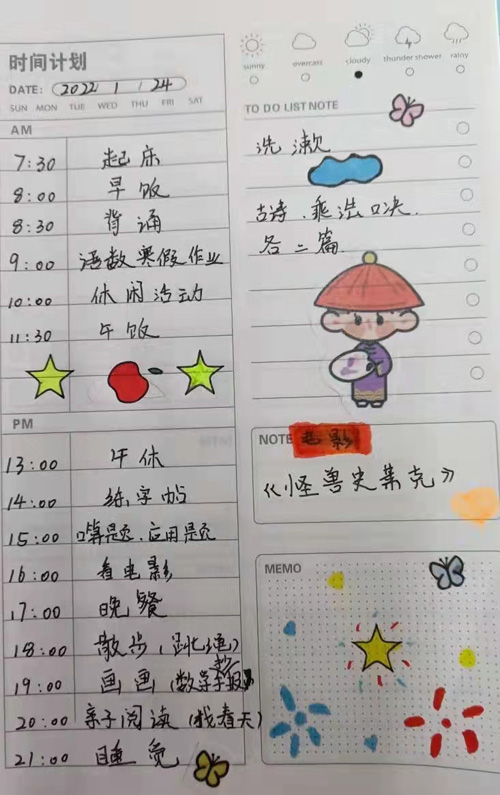 时间计划
DATE: 2022 1 / 24
SUN MON TUE WED THU FRI SAT
AM
7:30 起床
8:00 早饭
8:30 背诵
9:00 语数寒假作业
10:00 休闲活动
11:30 午饭
PM
13:00 午休
14:00 练字帖
15:00 口算题、应用题
16:00 看电影
17:00 晚餐
18:00 散步(跳绳)
19:00 画画(数学手抄报)
20:00 亲子阅读(找春天)
21:00 睡觉
sunny overcast cloudy thunder shower rainy
TO DO LIST NOTE
洗漱
古诗、乘法口决、
各二篇
NOTE 电影
《怪兽史莱克》
MEMO